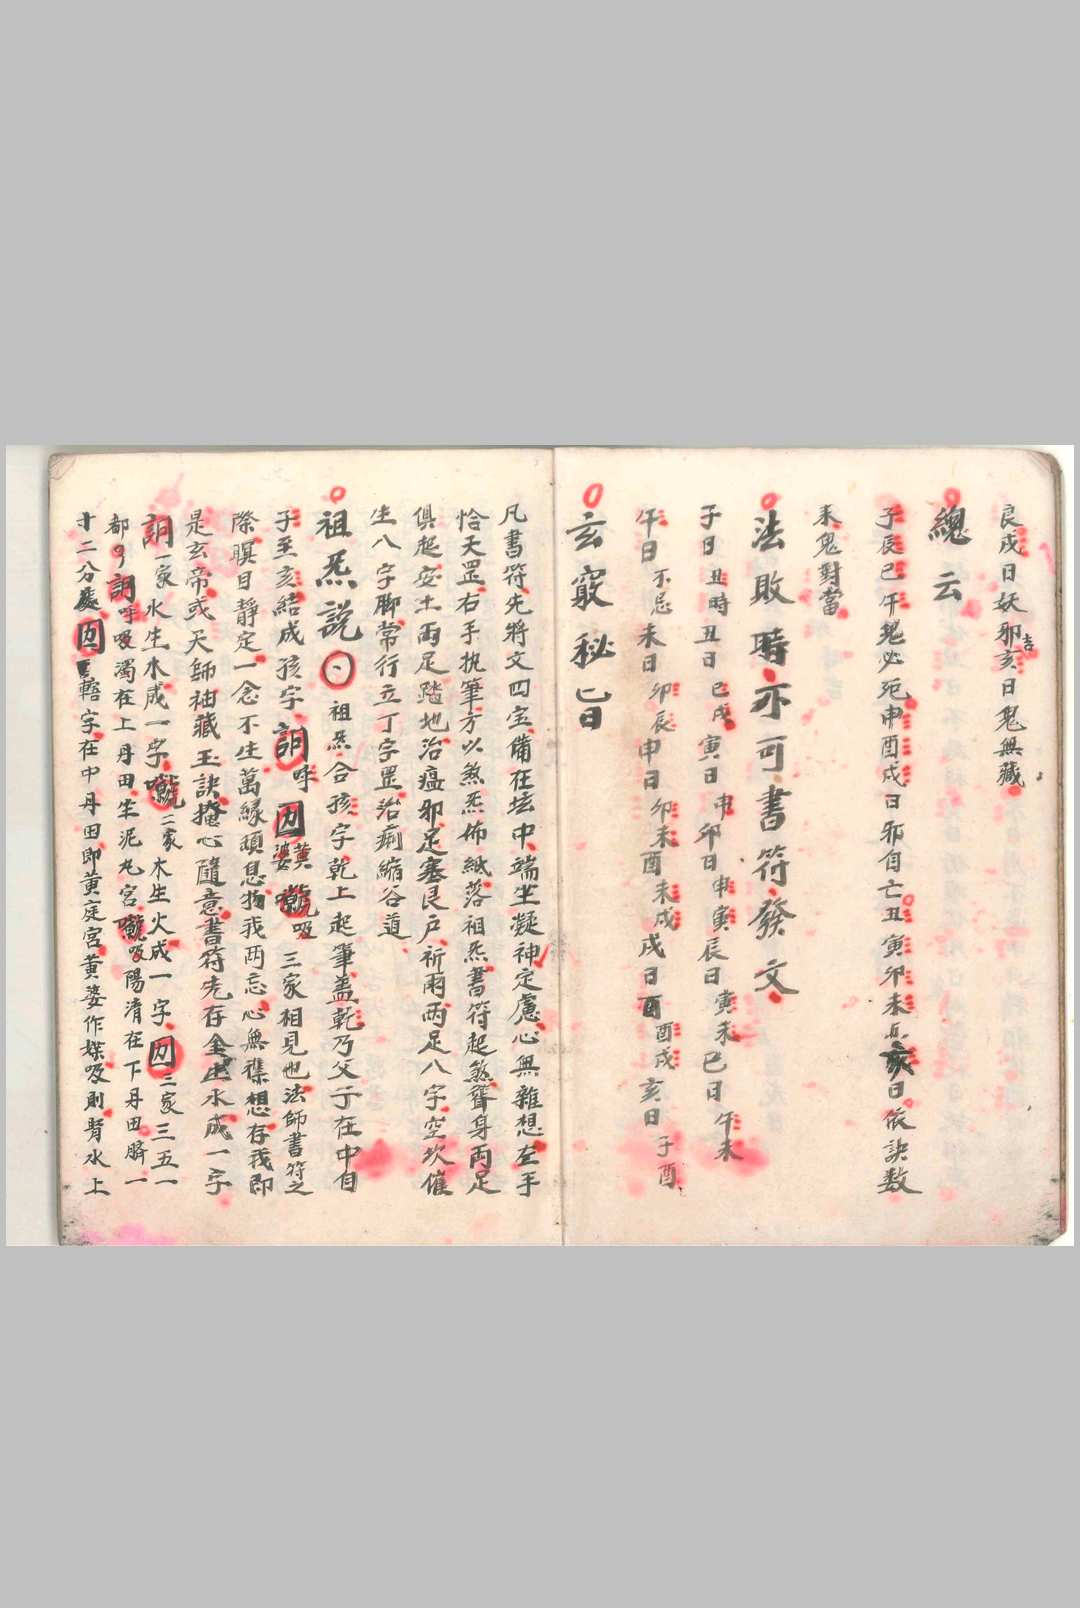 良戍日妖邪吉亥日鬼無藏
總云
子辰巳午鬼必死申酉戍日邪自亡丑寅卯未与亥日依訣数
未鬼對當
法敗時亦可書符發文
子日丑時丑日巳戍寅日申卯日申寅辰日寅未巳日午未
午日不忌未日卯辰申日卯未酉未戍戍日酉酉戍亥日子酉
玄竅秘旨
凡書符先將文四宝備在坛中端坐凝神定慮心無雜想左手
恰天罡右手执筆方以煞炁佈紙落祖炁書符起煞聳身両足
俱起安土両足踏地治瘟邪足塞艮户祈雨両足八字空坎催
生八字脚常行立丁字罡治痢縮谷道
祖炁説
祖炁合孩字乾上起筆盖乾乃父子在中自
子至亥結成孩字 呼 黄婆 吸三家相見也法師書符之
際瞑目靜定一念不生萬緣頓息物我两忘心無襍想存我即
是玄帝或天師袖藏玉訣捻心隨意書符先存金生水成一字
一家水生木成一字 二家木生火成一字 三家三五一
都 呼吸濁在上丹田坐泥丸宮 吸陽清在下丹田臍一
寸二分處 轄字在中丹田即黄庭宮黄婆作媒吸則腎水上